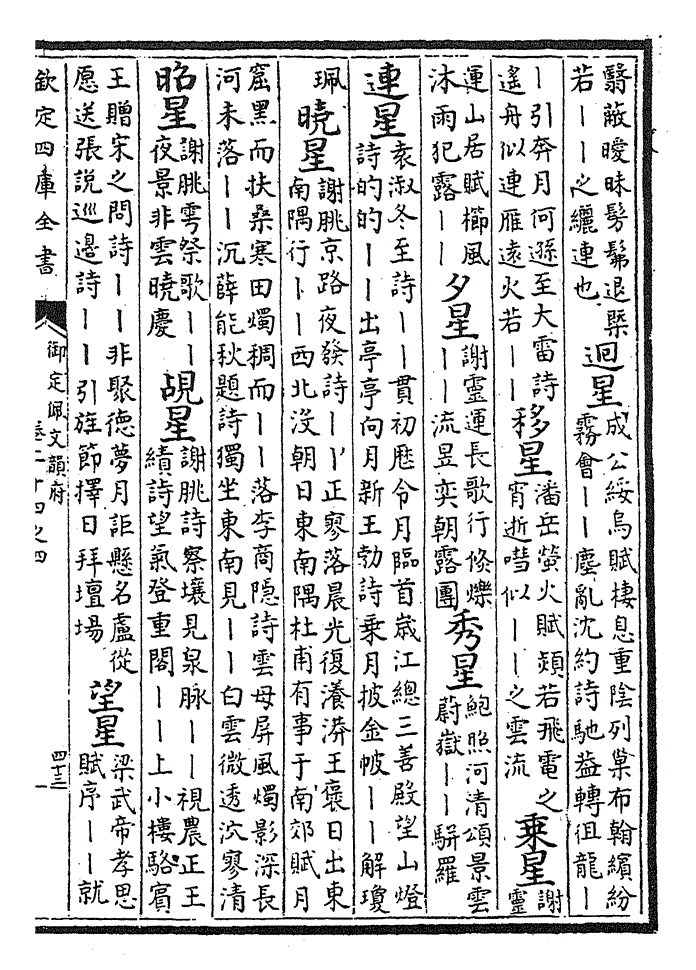 翳蔽曖昧髣髴退槩
若丨丨之纚連也
迥星
成公綏烏賦棲息重陰列巢布翰繽紛
霧會丨丨塵亂沈約詩馳益轉徂龍丨
丨引奔月何遜至大雷詩
遙舟似連雁遠火若丨丨
移星
潘岳螢火賦熲若飛電之
宵逝嘒似丨丨之雲流
乘星
謝
靈
運山居賦櫛風
沐雨犯露丨丨
夕星
謝靈運長歌行倐爍
丨丨流昱奕朝露團
秀星
鮑照河清頌景雲
蔚嶽丨丨駢羅
連星
袁淑冬至詩丨丨貫初厯令月臨首歲江總三善殿望山燈
詩的的丨丨出亭亭向月新王勃詩乘月披金帔丨丨解瓊
珮
曉星
謝朓京路夜發詩丨丨正寥落晨光復瀁漭王褒日出東
南隅行丨丨西北没朝日東南隅杜甫有事于南郊賦月
窟黑而扶桑寒田燭稠而丨丨落李商隱詩雲母屏風燭影深長
河未落丨丨沉薛能秋題詩獨坐東南見丨丨白雲微透泬寥清
昭星
謝朓雩祭歌丨丨
夜景非雲曉慶
覘星
謝朓詩察壤見泉脉丨丨視農正王
績詩望氣登重閣丨丨上小樓駱賓
王贈宋之問詩丨丨非聚德夢月詎懸名盧從
愿送張說巡邊詩丨丨引旌節擇日拜壇場
望星
梁武帝孝思
賦序丨丨就
欽定四庫全書
御定佩文韻府
卷二十四之四
四十三